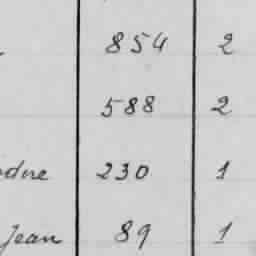 854 2
588 2
230 1
Jean 89 1